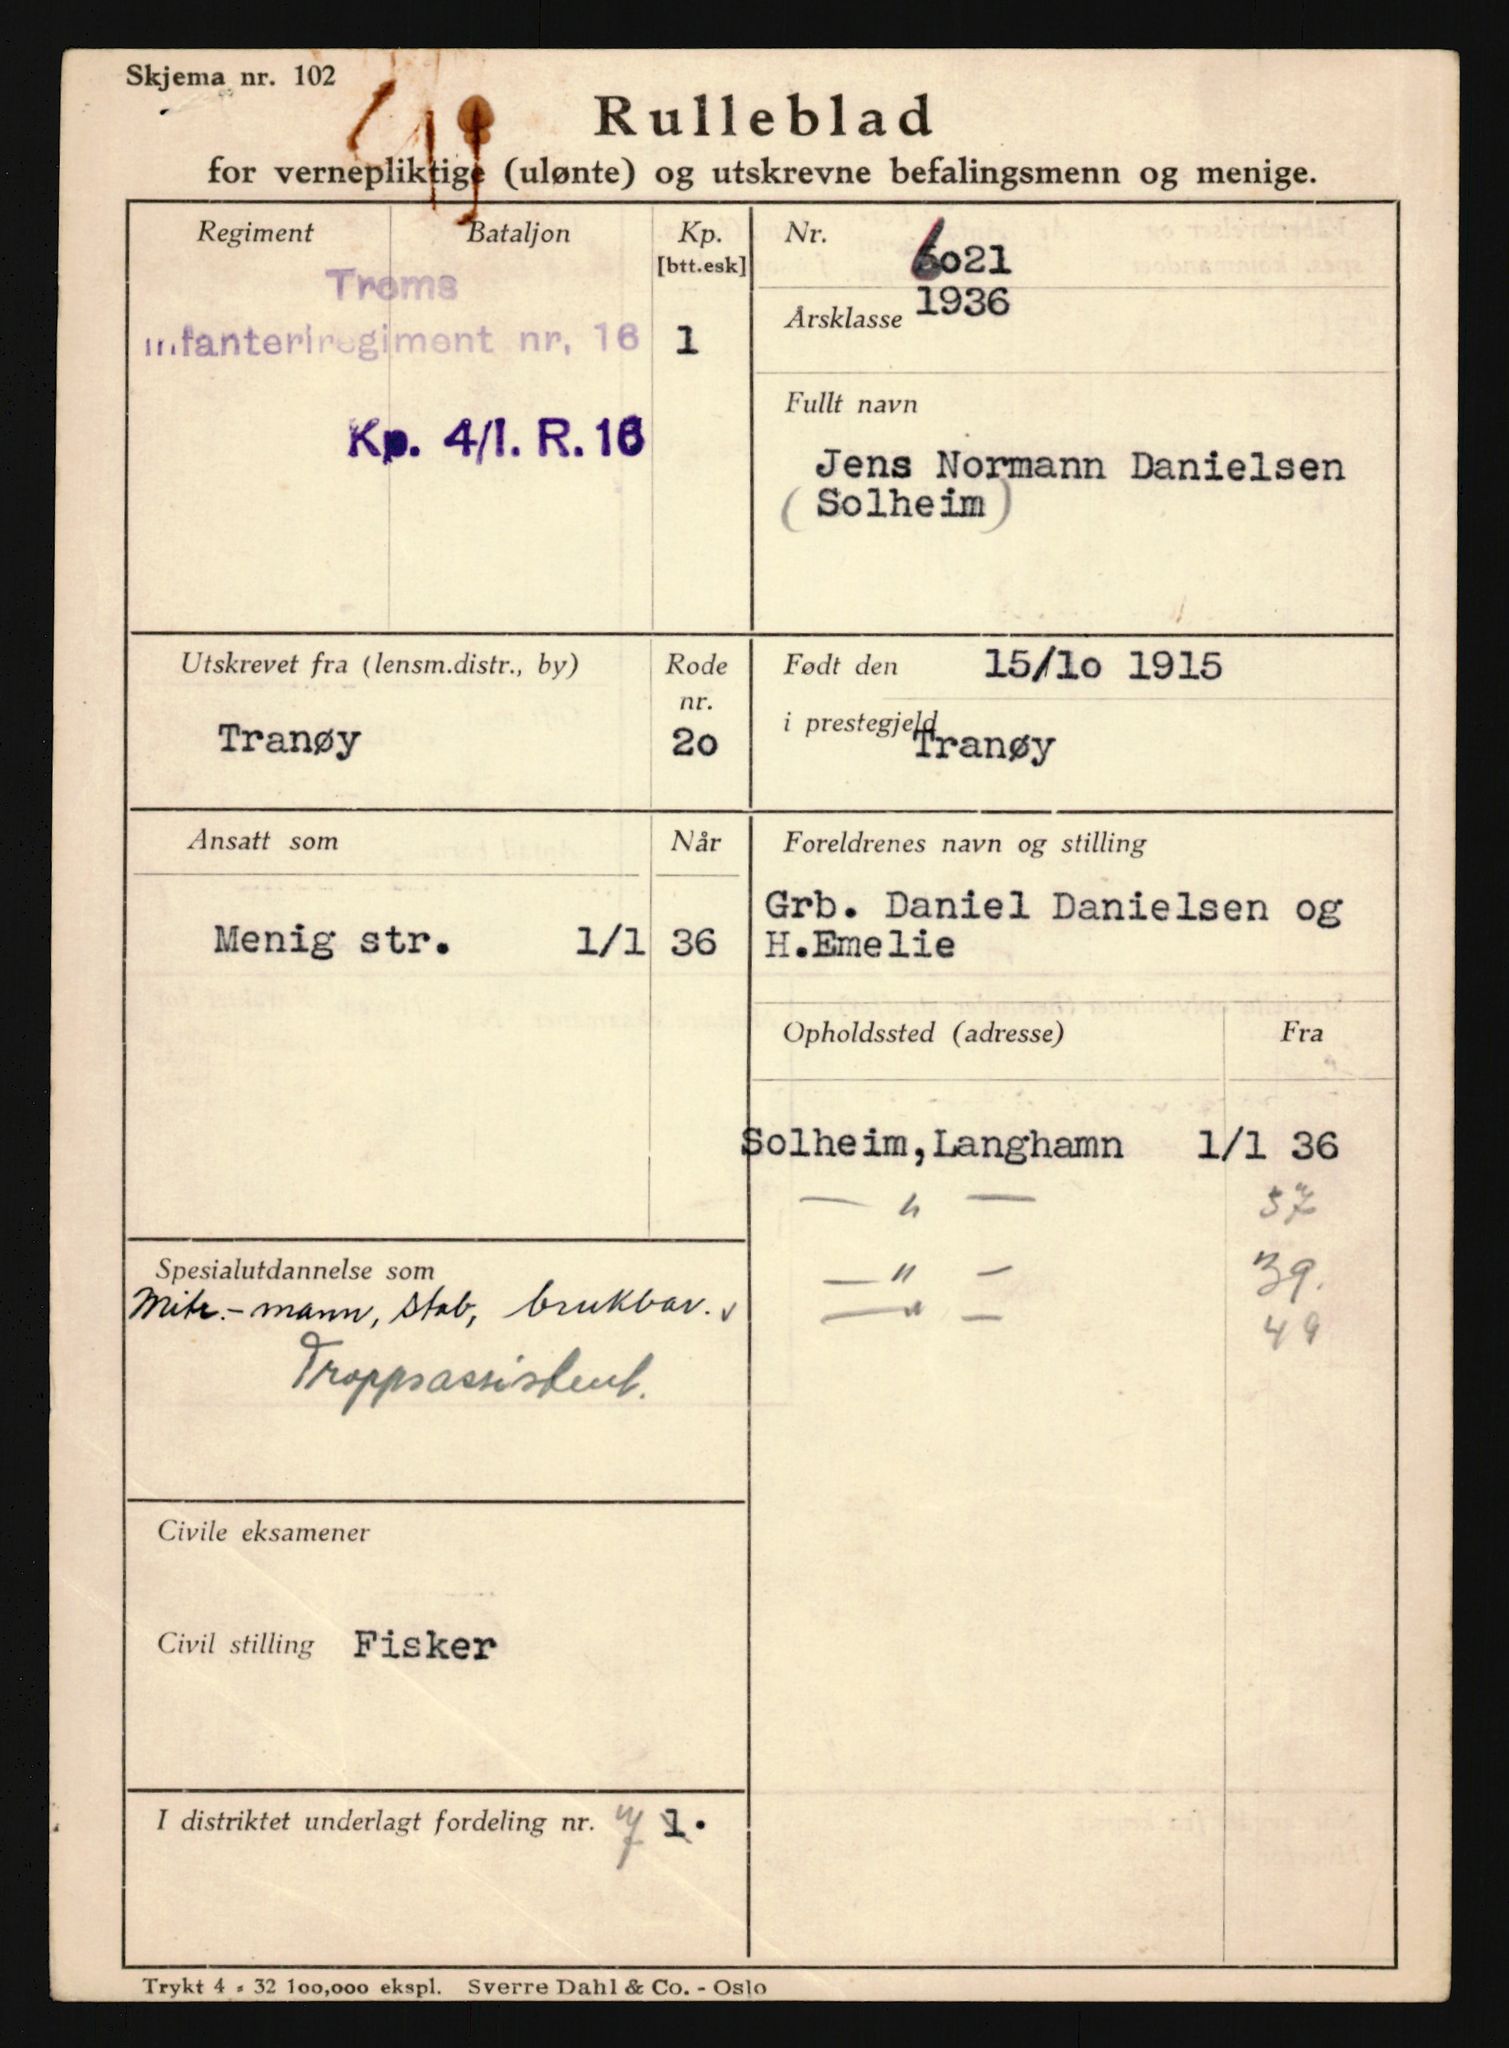 Skjema nr. 102
Rulleblad
for vernepliktige (ulønte) og utskrevne befalingsmenn og menige.
Regiment
Bataljon
Kp.
[btt.esk]
Troms
Infanteriregiment nr. 16
1
Kp. 4/I. R. 16
Nr.
6021
Årsklasse
1936
Fullt navn
Jens Normann Danielsen
(Solheim)
Utskrevet fra (lensm.distr., by)
Rode
nr.
Tranøy
20
Født den 15/10 1915
i prestegjeld
Tranøy
Ansatt som
Når
Menig str. 1/1 36
Foreldrenes navn og stilling
Grb. Daniel Danielsen og
H.Emelie
Opholdssted (adresse)
Fra
Solheim,Langhamn 1/1 36
— " — 37
— " — 39.
— " — 49
Spesialutdannelse som
Mitr.-mann, stab, brukbar.
Troppsassistent.
Civile eksamener
Civil stilling Fisker
I distriktet underlagt fordeling nr. 7 1.
Trykt 4 - 32 100,000 ekspl. Sverre Dahl & Co. - Oslo